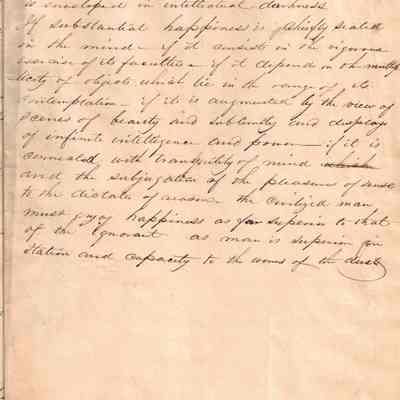 is enveloped in intellectual darkness
If substantial happiness is chiefly seated
in the mind – if it consists in the vigorous
exercise of its faculties – if it depend on the multip
licity of objects which lie in the range of its
contemplation – if it is augmented by the view of
scenes of beauty and sublimity and displays
of infinite intelligence and power – if it is
connected with tranquility of mind which
and the subjugation of the pleasures of sense
to the dictates of reason – the civilized man
must enjoy happiness as far superior to that
of the ignorant as man is superior in
station and capacity to the worms of the dust